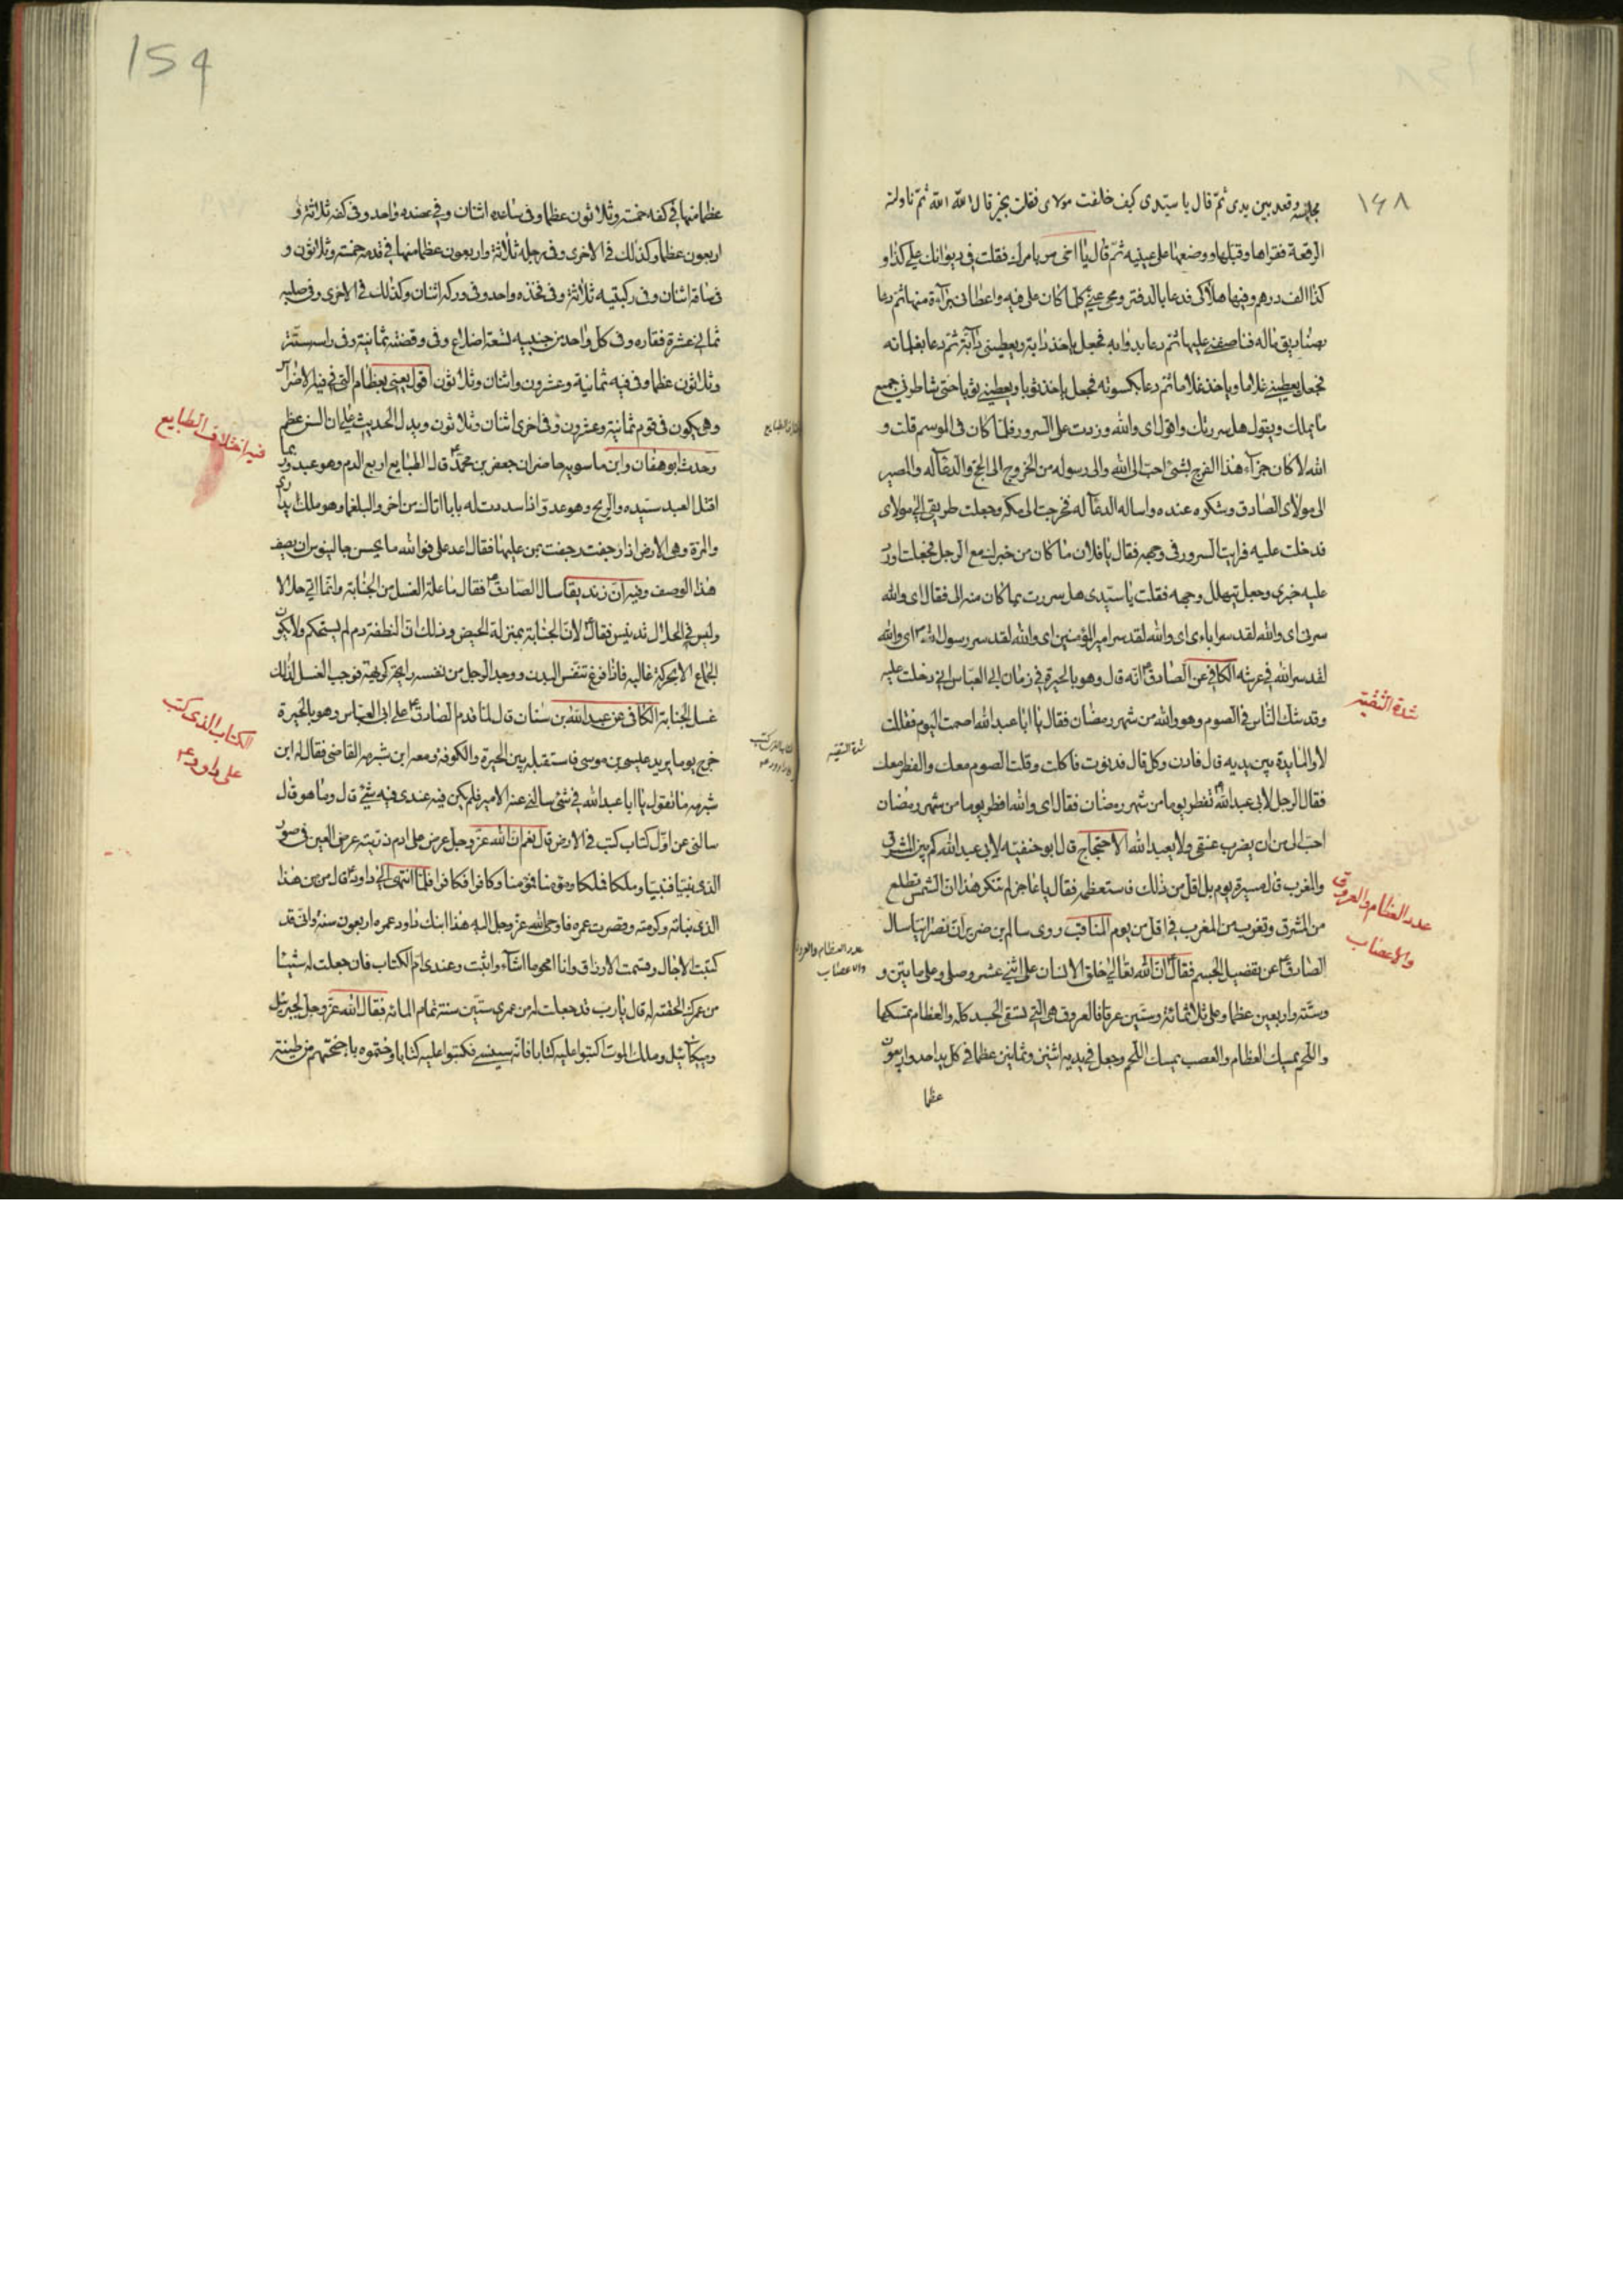 ١٤٨
مجلسه وقعد بين يدى ثمّ قال يا سيّدى كيف خلفت مولاى فقلت بخير قال الله الله ثمّ ناولته
الرقعة فقراها وقبّلها ووضعها على عينيه ثمّ قال يا اخى مر بامرك فقلت فى ديوانك علىّ كذا و
كذا الف درهم وفيها هلاكى فدعا بالدفتر ومحى عنّى كلّما كان على فيه واعطانى براءة منها ثم دعا
بصناديق ماله فناصفنى عليها ثم دعا بدوابه فجعل ياخذ دابة ويعطينى دابّة ثم دعا بغلمانه
فجعل يعطينى غلاما وياخذ غلاما ثم دعا بكسوته فجعل ياخذ ثوبا ويعطينى ثوبا حتى شاطرنى جميع
ما يملك ويقول هل سررتك واقول اى والله وزدت على السرور فلمّا كان فى الموسم قلت و
الله لا كان جزآء هذا الفرج بشئ احبّ الى الله والى رسوله من الخروج الى الحجّ والدعآء له والمصير
الى مولاى الصادق وشكره عنده واساله الدعآء له فخرجت الى مكة وجعلت طريقى الى مولاى
فدخلت عليه فرايت السرور فى وجهه فقال يا فلان ما كان من خبرك مع الرجل فجعلت اورد
عليه خبرى وجعل يتهلل وجهه فقلت يا سيّدى هل سررت بما كان منه الى فقال اى والله
سرنى اى والله لقد سر اباءى اى والله لقد سر امير المؤمنين اى والله لقد سر رسول الله ص اى والله
لقد سر الله فى عرشه الكافى عن الصادق ع انه قال وهو بالحيرة فى زمان ابى العبّاس انى دخلت عليه
وقد شك النّاس فى الصوم وهو والله من شهر رمضان فقال يا ابا عبد الله اصمت اليوم فقلت
لا والمايدة بين يديه قال فادن وكل قال فدنوت فاكلت وقلت الصوم معك والفطر معك
فقال الرجل لابى عبد الله ع تفطر يوما من شهر رمضان فقال اى والله افطر يوما من شهر رمضان
احبّ الىّ من ان يضرب عنقى ولا يعبد الله الاحتجاج قال ابو حنفيه لابى عبد الله كم بين المشرق
والمغرب قال مسيرة يوم بل اقل من ذلك فاستعظمه فقال يا عاجز لم تنكر هذا انّ الشمس تطلع
من المشرق وتغرب من المغرب فى اقل من يوم المناقب روى سالم بن ضرير ان نصرانيا سال
الصادق ع عن تفضيل الجسم فقال ع انّ الله تعالى خلق الانسان على اثنى عشر وصلى وعلى مايتين و
وستة واربعين عظما وعلى ثلاثمائة وستّين عرقا فالعروق هى التى تسقى الجسد كله والعظام تمسكها
واللحم يمسك العظام والعصب يمسك اللحم وجعل فى يديه اثنين وثمانين عظما فى كل يد احد واربعون
عظما
شدة التقيّه
عدد العظام والعروق
والاعصاب
شدة التقيه
عدد العظام والعروق
والاعصاب
159
عظما منها فى كفه خمسة وثلاثون عظما وفى ساعده اثنان وفى عضده واحد وفى كتفه ثلاثة و
اربعون عظما وكذلك فى الاخرى وفى رجله ثلاثة واربعون عظما منها فى قدمه خمسة وثلاثون و
فى ساقه اثنان وفى ركبتيه ثلاثة وفى فخذه واحد وفى وركه اثنان وكذلك فى الاخرى وفى صلبه
ثمانى عشرة فقاره وفى كل واحد من جنبيه تسعة اضلاع وفى وقصته ثمانية وفى راسه ستّة
وثلاثون عظما وفى فيه ثمانية وعشرون واثنان وثلاثون اقول يعنى بعظام التى فى فيه الاضراس
وهى يكون فى قوم ثمانية وعشرون وفى اخرى اثنان وثلاثون ويدل الحديث على ان السن عظم
وحدث ابو هفان وابن ماسويه حاضر ان جعفر بن محمّد ع قال الطبايع اربع الدم وهو عبد وربما
اقتل العبد سيّده والريح وهو عدو اذا سددت له بابا اتاك من اخر والبلغم وهو ملك يدارى
والمرّة وهى الارض اذا رجفت رجفت بمن عليها فقال اعد على فوالله ما يحسن جالينوس ان يصف
هذا الوصف وفيه انّ زنديقا سال الصادق ع فقال ما علة الغسل من الجنابة وانّما اتى حلالا
وليس فى الحلال تدنيس فقال ع لانّ الجنابة بمنزلة الحيض وذلك ان النطفة دم لم يستحكم ولا يكون
الجماع الا بحركة غالبه فاذا فرغ تنفس البدن ووجد الرجل من نفسه رايحة كريهة فوجب الغسل لذلك
غسل الجنابة الكافى عن عبد الله بن سنان قال لمّا قدم الصادق ع على ابى العباس وهو بالحيرة
خرج يوما يريد عيسى بن موسى فاستقبله بين الحيرة والكوفة ومعه ابن شبرمه القاضى فقال له ابن
شبرمه ما تقول يا ابا عبد الله فى شئ سالنى عنه الامير فلم يكن فيه عندى فيه شئ قال وما هو قال
سالنى عن اوّل كتاب كتب فى الارض قال نعم انّ الله عزّ وجل عرض على ادم ذريّته عرض العين فى صور
الذر نبيّا فنبيّا وملكا فملكا ومؤمنا فمؤمنا وكافرا فكافرا فلمّا انتهى الى داود ع قال من هذا
الذى نباته وكرمته وقصرت عمره فاوحى الله عزّ وجل اليه هذا ابنك داود عمره اربعون سنة وانّى قد
كتبت الاجال وقسمت الارزاق وانا امحو ما اشآء واثبت وعندى امّ الكتاب فان جعلت له شيئا
من عمرك الحقته له قال يا ربّ قد جعلت له من عمرى ستّين سنة تمام المائة فقال الله عزّ وجل لجبرئيل
وميكآئيل وملك الموت اكتبوا عليه كتابا فانّه سينسى فكتبوا عليه كتابا وختموه باجنحتهم من طينة
فيه اختلاف الطبايع
الكتاب الذى كتب
على داود ع
الطبايع